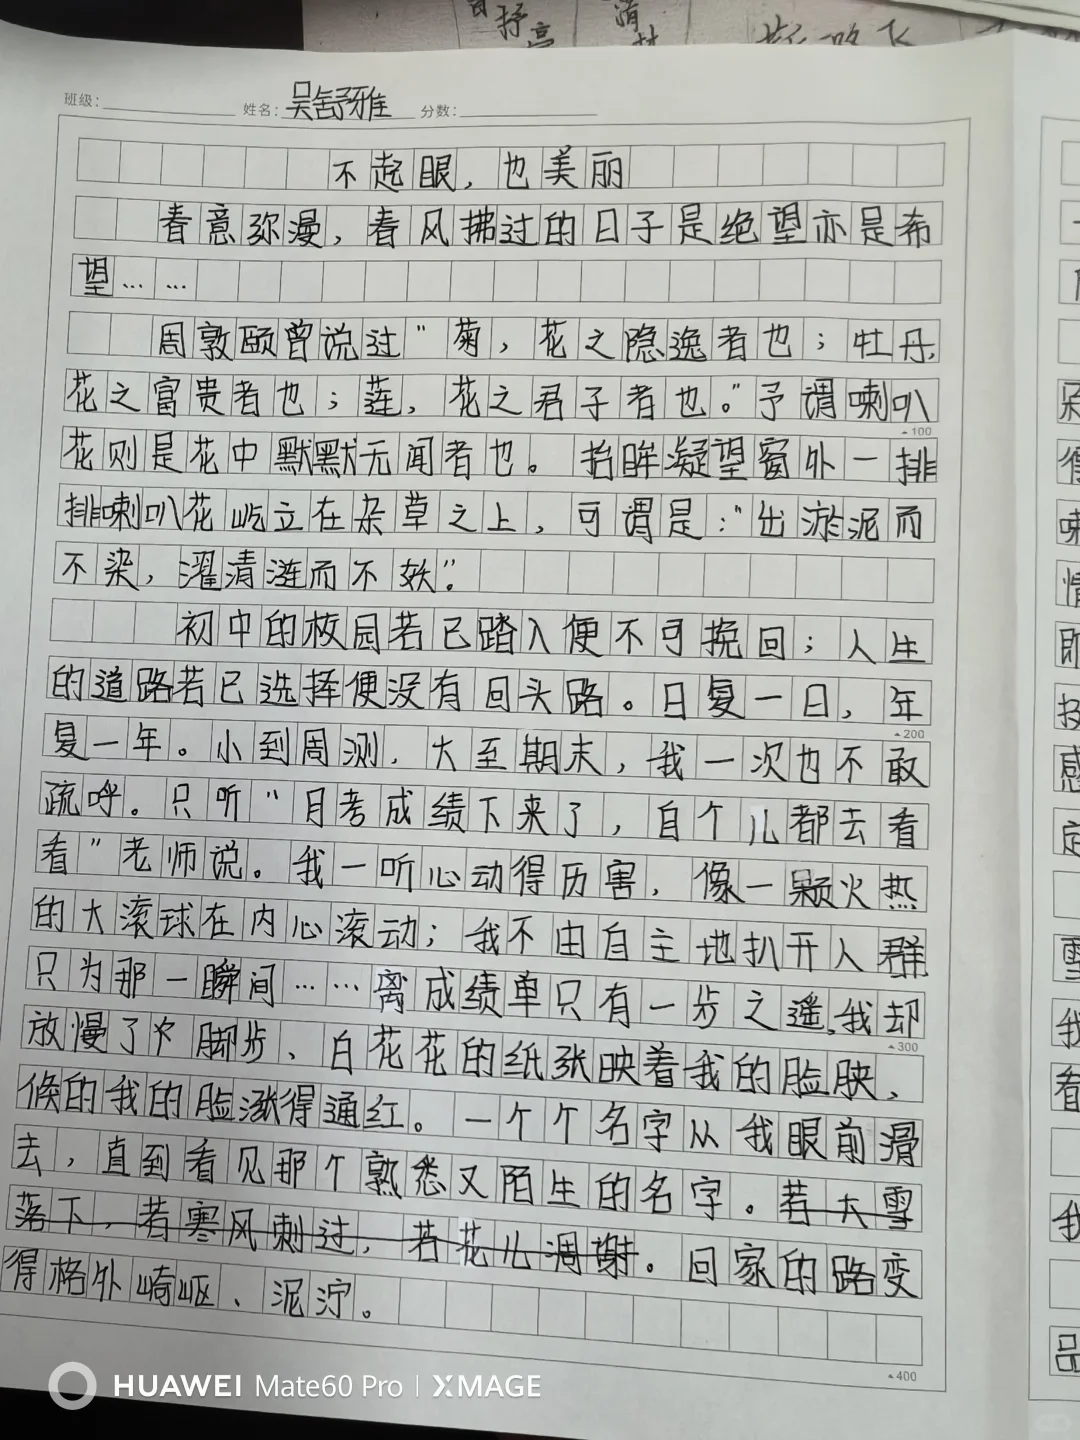 班级：
姓名：吴舒雅
分数：
不起眼，也美丽
春意弥漫，春风拂过的日子是绝望亦是希
望……
周敦颐曾说过“菊，花之隐逸者也；牡丹，
花之富贵者也；莲，花之君子者也。”予谓喇叭
▲100
花则是花中默默无闻者也。抬眸凝望窗外一排
排喇叭花屹立在杂草之上，可谓是：“出淤泥而
不染，濯清涟而不妖”。
初中的校园若已踏入便不可挽回；人生
的道路若已选择便没有回头路。日复一日，年
▲200
复一年。小到周测，大至期末，我一次也不敢
疏呼。只听“月考成绩下来了，自个儿都去看
看”老师说。我一听心动得历害，像一颗火热
的大滚球在内心滚动；我不由自主地扒开人群
只为那一瞬间……离成绩单只有一步之遥，我却
▲300
放慢了脚步、白花花的纸张映着我的脸胦、
倏的我的脸涨得通红。一个个名字从我眼前滑
去，直到看见那个熟悉又陌生的名字。若大雪
落下，若寒风刺过，若花儿凋谢。回家的路变
得格外崎岖、泥泞。
▲400
HUAWEI Mate60 Pro | XMAGE